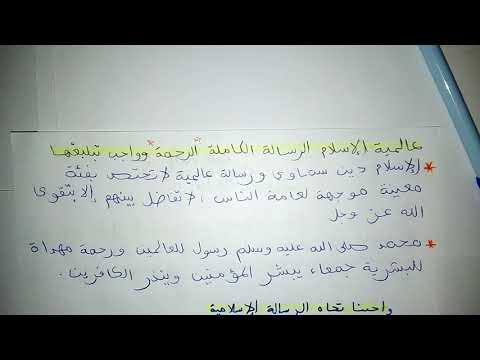 عالمية الإسلام الرسالة الكاملة الرحمة وواجب تبليغها
* الإسلام دين سماوي ورسالة عالمية لا تختص بفئة
معينة موجهة لعامة الناس، لا تفاضل بينهم إلا بتقوى
الله عز وجل
* محمد صلى الله عليه وسلم رسول للعالمين ورحمة مهداة
للبشرية جمعاء يبشر المؤمنين وينذر الكافرين.
واجبنا تجاه الرسالة الإسلامية